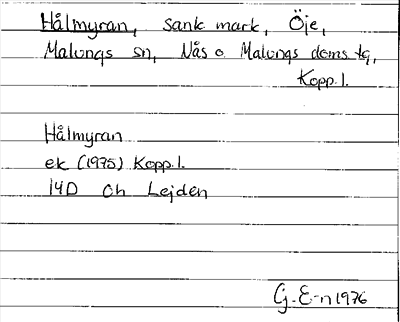 Hålmyran, sank mark, Öje,
Malungs sn, Nås o. Malungs doms tg,
Kopp. l.
Hålmyran
ek (1975) Kopp. l.
14D Ch Lejden
G. E-n 1976